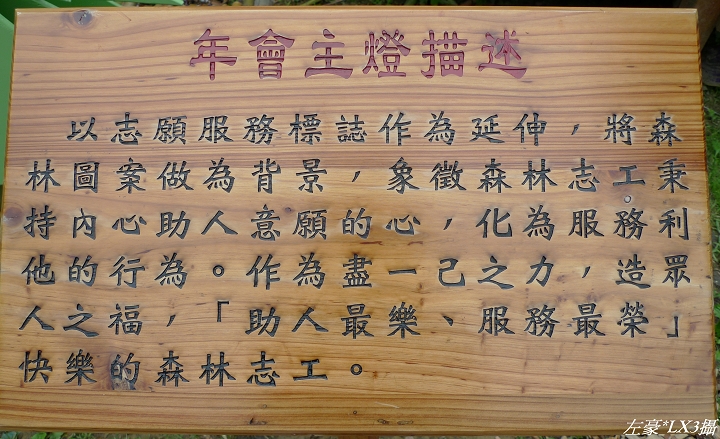 年會主燈描述
以志願服務標誌作為延伸，將森
林圖案做為背景，象徵森林志工秉
持內心助人意願的心，化為服務利
他的行為。作為盡一己之力，造眾
人之福，「助人最樂、服務最榮」
快樂的森林志工。
左豪*LX3攝